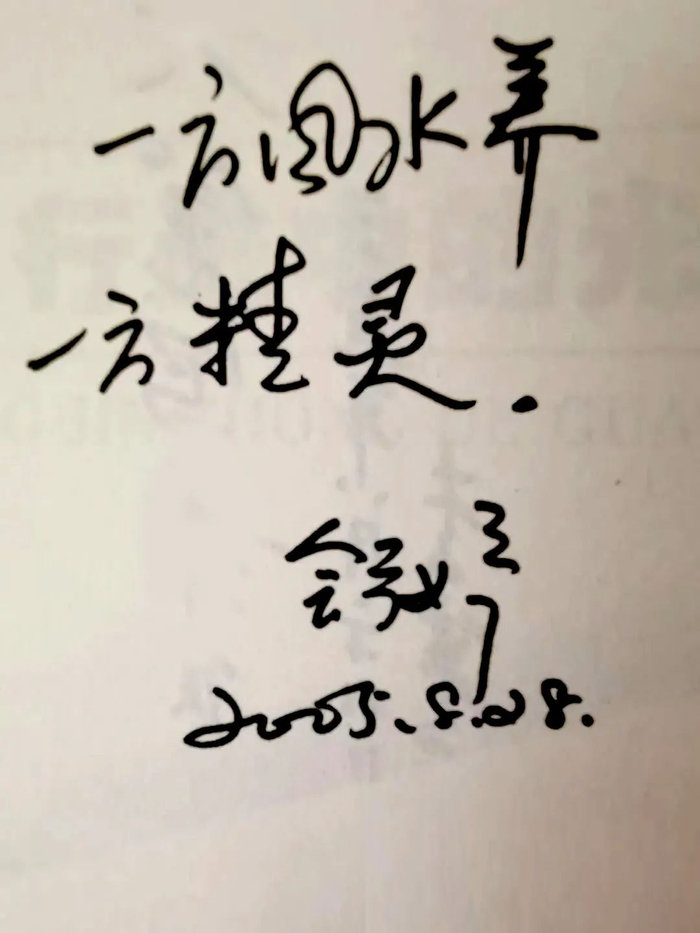 一方风水养
一方精灵.
2005.8.28.